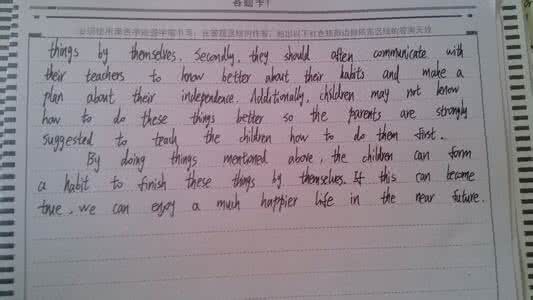 答题卡1
things by themselves. Secondly, they should often communicate with
their teachers to know better about their habits and make a
plan about their independence. Additionally, children may not know
how to do these things better so the parents are strongly
suggested to teach the children how to do them first.
By doing things mentioned above, the children can form
a habit to finish these things by themselves. If this can become
true, we can enjoy a much happier life in the near future.